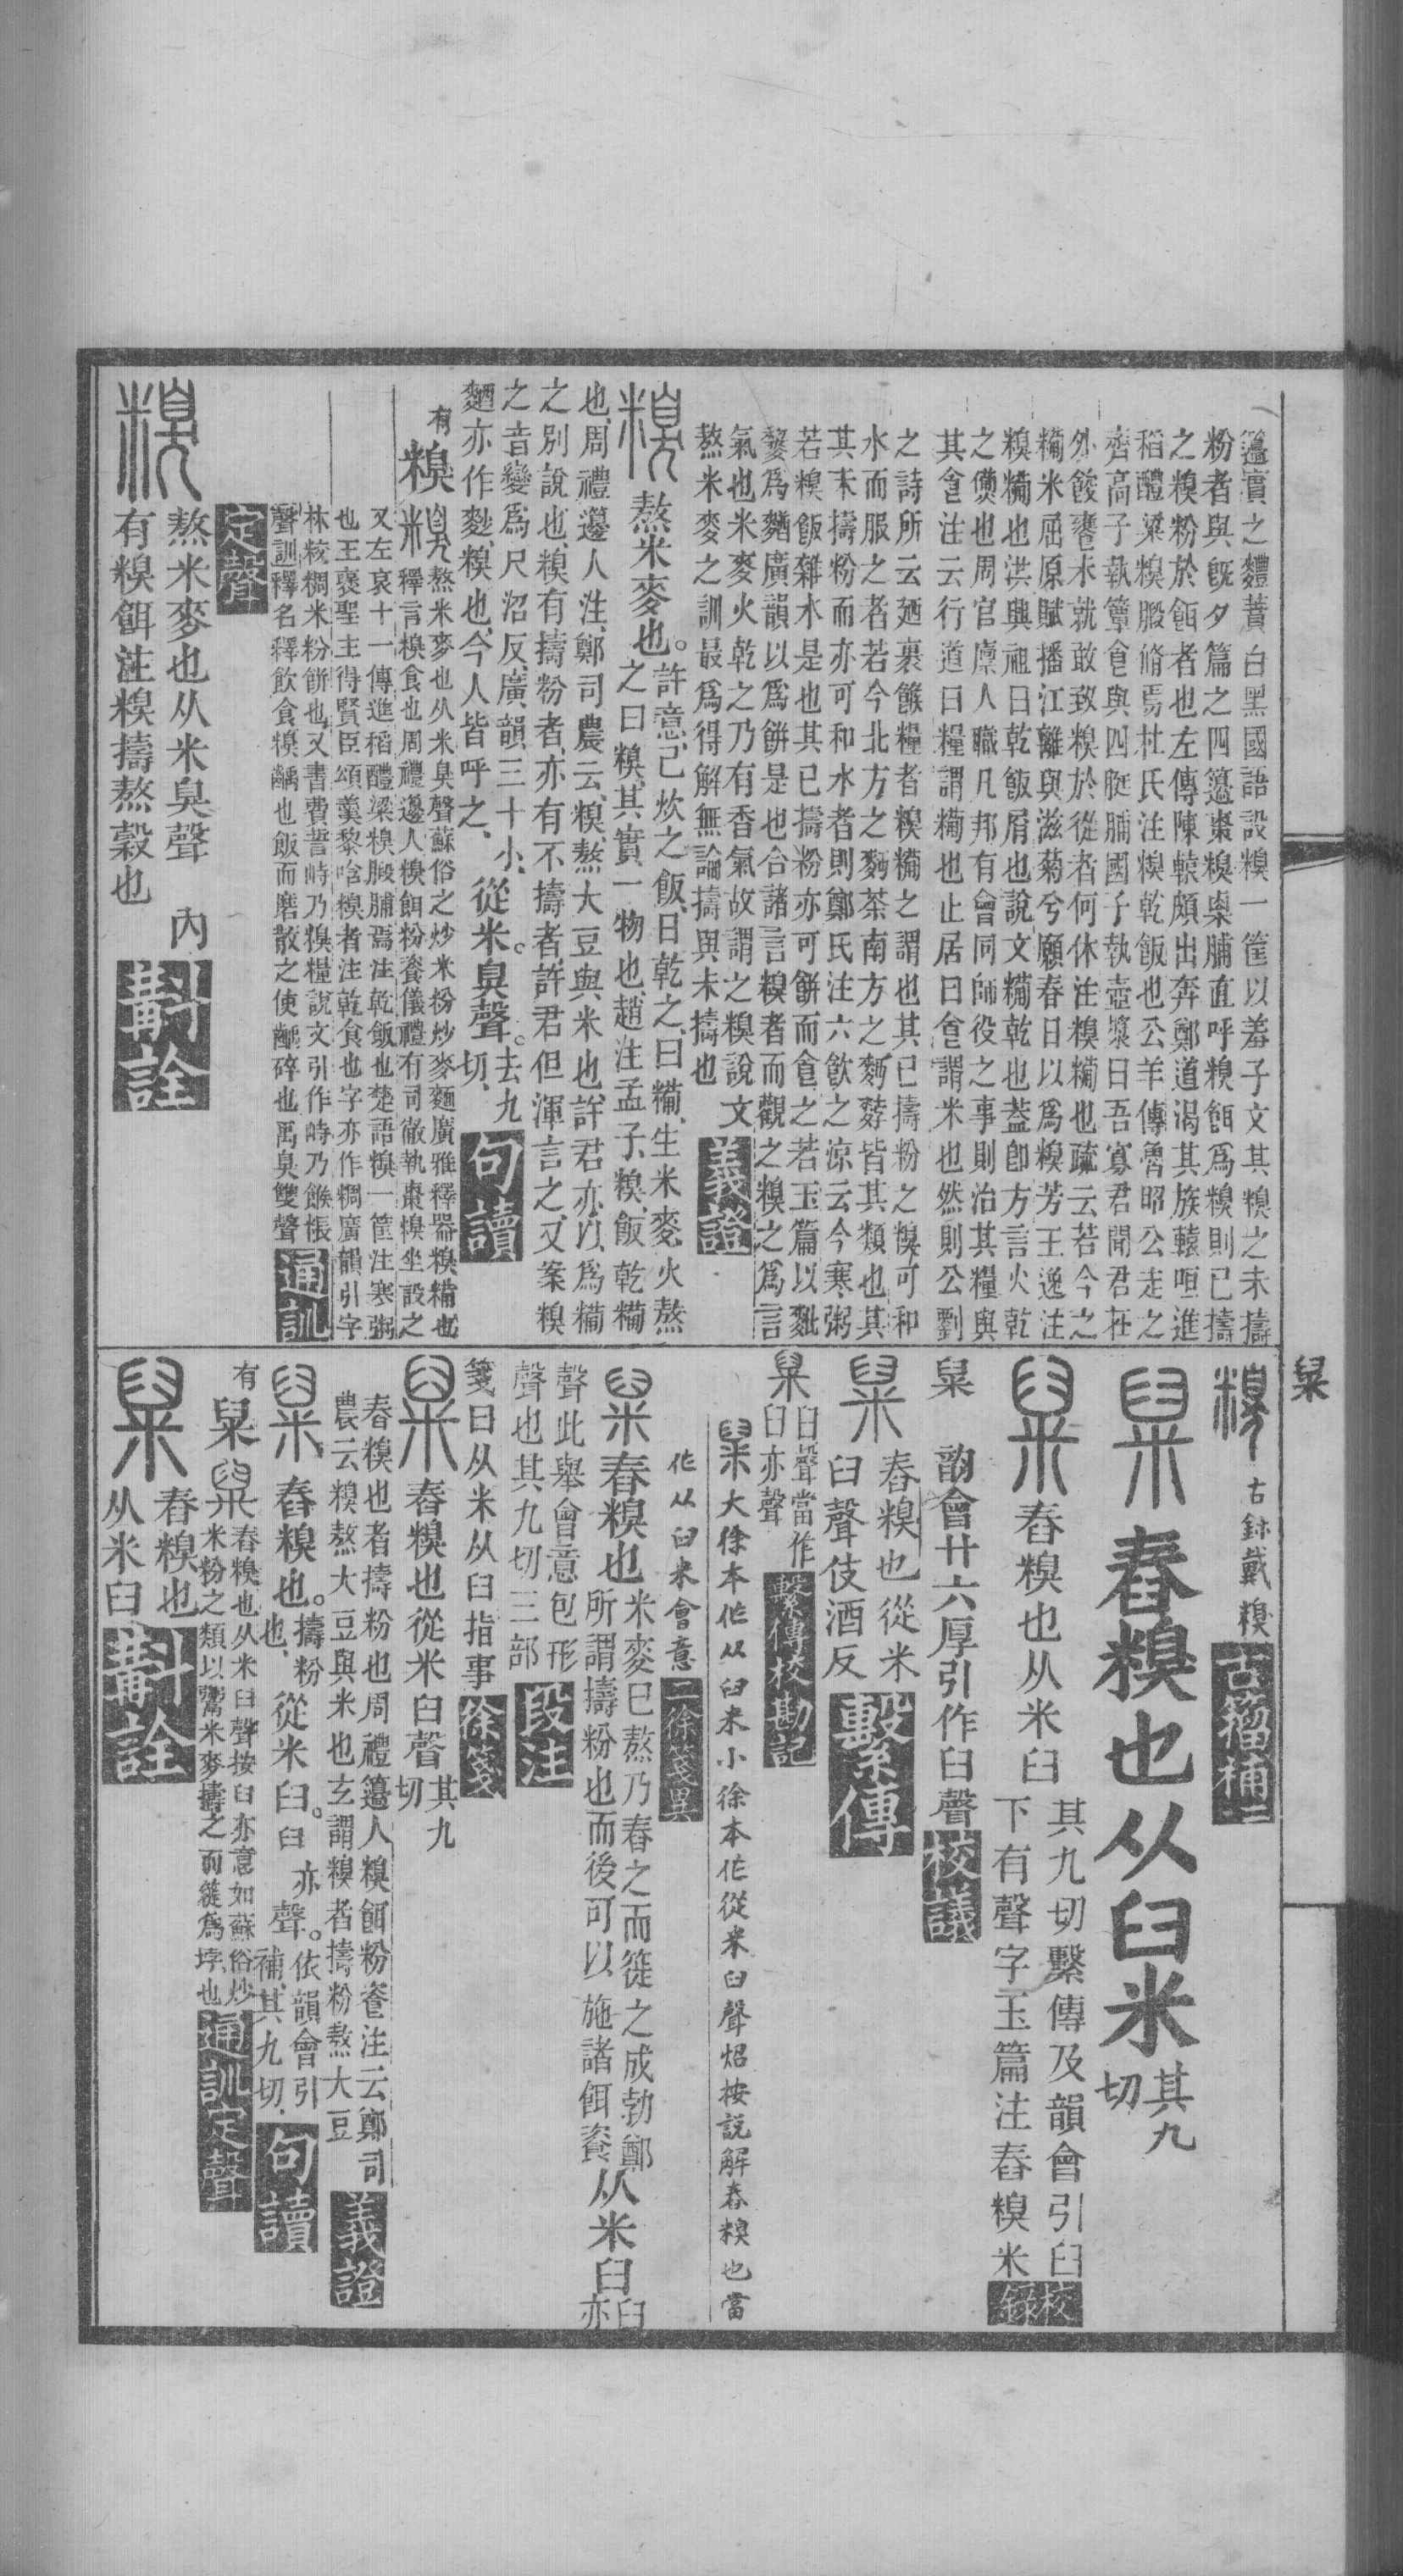 籩實之麷蕡白黑國語設糗一筐以羞子文其糗之未擣
粉者與旣夕篇之四籩棗糗㮚脯直呼糗餌爲糗則已擣
之糗粉於餌者也左傳陳轅頗出奔鄭道渴其族轅咺進
稻醴粱糗腶脩焉杜氏注糗乾飯也公羊傳魯昭公走之
齊高子執簞食與四脡脯國子執壺漿曰吾寡君聞君在
外餕饔未就敢致糗於從者何休注糗糒也疏云若今之
糒米屈原賦播江離與滋菊兮願春日以爲糗芳王逸注
糗糒也洪興祖曰乾飯屑也說文糒乾也葢卽方言火乾
之㷶也周官廩人職凡邦有會同師役之事則治其糧與
其食注云行道曰糧謂糒也止居曰食謂米也然則公劉
之詩所云廼裹餱糧者糗糒之謂也其已擣粉之糗可和
水而服之者若今北方之麪茶南方之麪䴹皆其類也其
其未擣粉而亦可和水者則鄭氏注六飮之涼云今寒粥
若糗飯雜水是也其已擣粉亦可餠而食之若玉篇以䴲
䴢爲䴰廣韻以爲餠是也合諸言糗者而觀之糗之爲言
氣也米麥火乾之乃有香氣故謂之糗說文
熬米麥之訓最爲得解無論擣與未擣也 義證
熬米麥也。許意、已炊之飯、日乾之、曰糒、生米麥、火熬
之曰糗、其實一物也、趙注孟子、糗、飯乾糒
也、周禮籩人注、鄭司農云、糗、熬大豆與米也、許君亦以爲糒
之別說也、糗有擣粉者、亦有不擣者、許君但渾言之、又案糗
之音變爲尺沼反、廣韻、三十小、從米。臭聲。去九切、 句讀
麵亦作麨、糗也、今人皆呼之、
有糗熬米麥也从米臭聲蘇俗之炒米粉炒麥麵廣雅釋器糗糒也
釋言糗食也周禮籩人糗餌粉餈儀禮有司徹執棗糗坐設之
又左哀十一傳進稻醴粱糗腶脯焉注乾飯也楚語糗一筐注寒粥
也王褒聖主得賢臣頌羹黎唅糗者注乾食也字亦作䊩廣韻引字
林糗䊩米粉餠也又書費誓峙乃糗糧說文引作峙乃餱粻
聲訓釋名釋飮食糗齲也飯而磨散之使齲碎也禹臭雙聲 通訓
定聲
熬米麥也从米臭聲 內
有糗餌注糗擣熬穀也 斠詮
臼米
古鉥戴糗 古籒補二
舂糗也从臼米其九切
舂糗也从米臼其九切繫傳及韻會引臼
下有聲字玉篇注舂糗米 校錄
䊆 韵會廿六厚引作臼聲 校議
舂糗也從米
臼聲伎酒反 繫傳
䊆臼聲當作
臼亦聲 繫傳校勘記
大徐本作从臼米小徐本作從米臼聲炤按説解舂糗也當
作从臼米會意 二徐箋異
舂糗也米麥已熬乃舂之而簁之成勃鄭
所謂擣粉也而後可以施諸餌餈从米臼臼亦
聲此舉會意包形
聲也其九切三部 段注
箋曰从米从臼指事 徐箋
舂糗也從米臼聲其九切
舂糗也者擣粉也周禮籩人糗餌粉餈注云鄭司
農云糗熬大豆與米也玄謂糗者擣粉熬大豆 義證
舂糗也。擣粉也、從米臼。臼亦聲。依韻會引補、其九切、 句讀
有䊆舂糗也从米臼聲按臼亦意如蘇俗炒
米粉之類以鬻米麥擣之而簁爲㙇也 通訓定聲
舂糗也
从米臼 斠詮